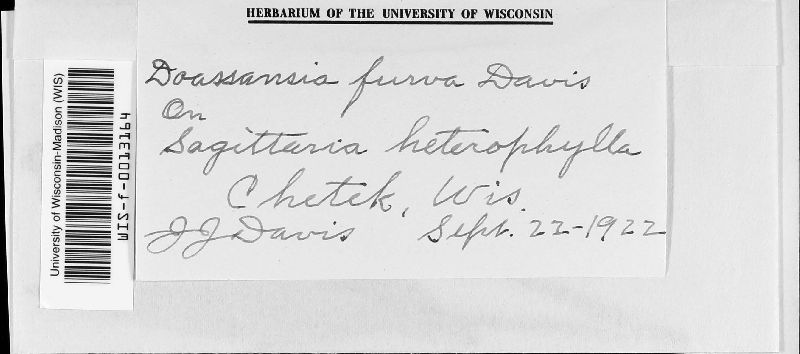 HERBARIUM OF THE UNIVERSITY OF WISCONSIN
Doassansia furva Davis
On
Sagittaria heterophylla
Chetek, Wis.
JJDavis Sept. 22-1922
University of Wisconsin-Madison (WIS)
WIS-f-0013194